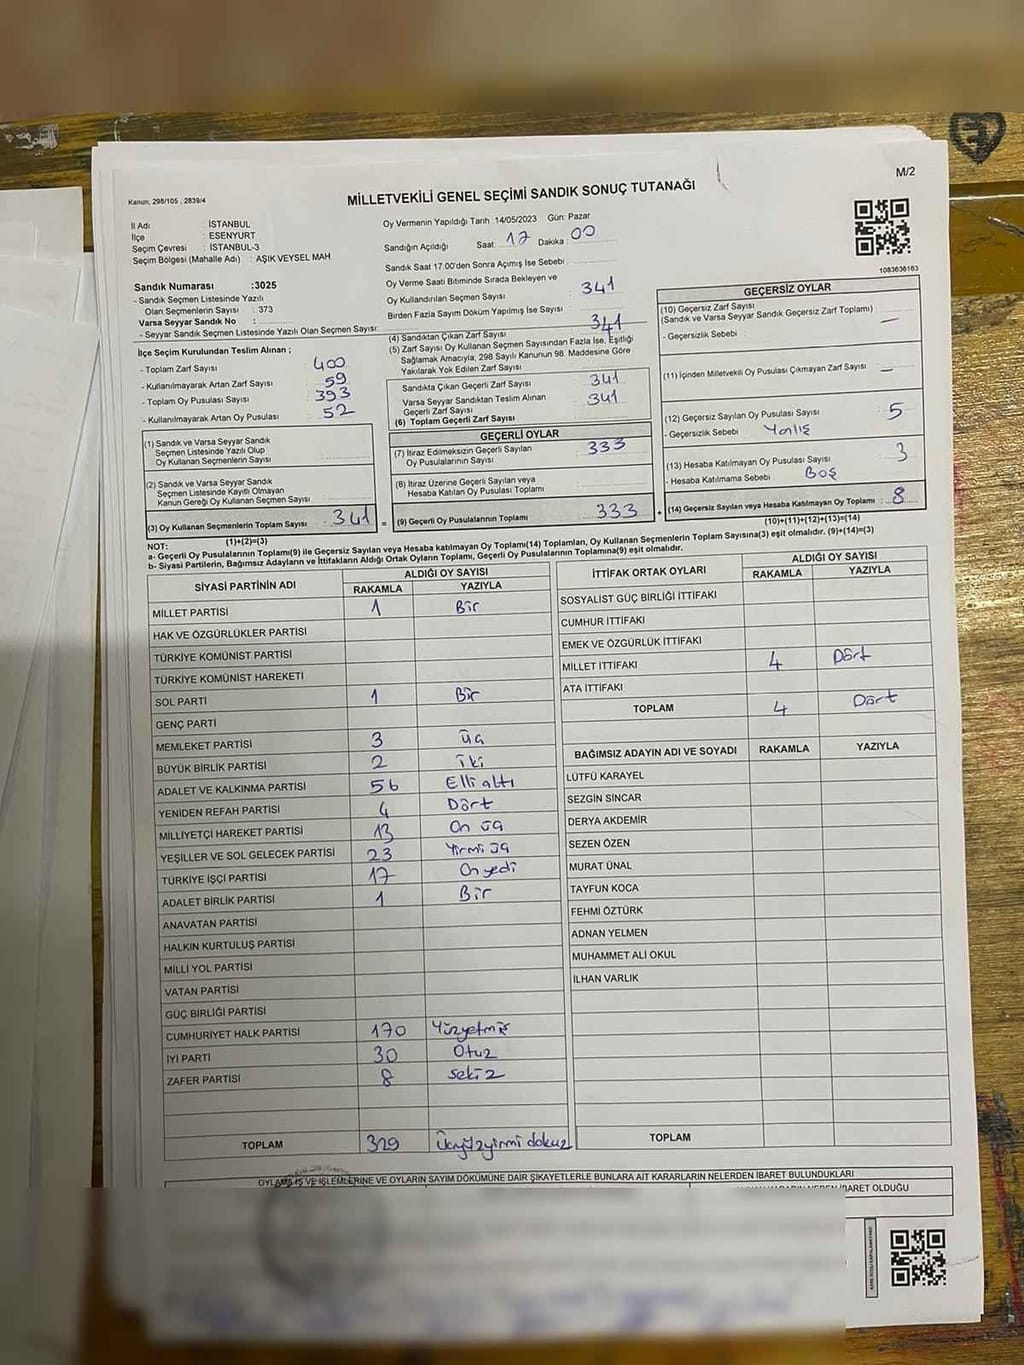 M/2
Kanun; 298/105 , 2839/4
MİLLETVEKİLİ GENEL SEÇİMİ SANDIK SONUÇ TUTANAĞI
İl Adı : İSTANBUL
İlçe : ESENYURT
Seçim Çevresi : İSTANBUL-3
Seçim Bölgesi (Mahalle Adı) : AŞIK VEYSEL MAH
Sandık Numarası :3025
- Sandık Seçmen Listesinde Yazılı
Olan Seçmenlerin Sayısı : 373
Varsa Seyyar Sandık No :
- Seyyar Sandık Seçmen Listesinde Yazılı Olan Seçmen Sayısı:
İlçe Seçim Kurulundan Teslim Alınan ;
- Toplam Zarf Sayısı 400
- Kullanılmayarak Artan Zarf Sayısı 59
- Toplam Oy Pusulası Sayısı 393
- Kullanılmayarak Artan Oy Pusulası 52
(1) Sandık ve Varsa Seyyar Sandık
Seçmen Listesinde Yazılı Olup
Oy Kullanan Seçmenlerin Sayısı
(2) Sandık ve Varsa Seyyar Sandık
Seçmen Listesinde Kayıtlı Olmayan
Kanun Gereği Oy Kullanan Seçmen Sayısı
(3) Oy Kullanan Seçmenlerin Toplam Sayısı : 341
(1)+(2)=(3)
Oy Vermenin Yapıldığı Tarih :14/05/2023 Gün: Pazar
Sandığın Açıldığı Saat 17 Dakika : 00
Sandık Saat 17:00'den Sonra Açılmış İse Sebebi :
Oy Verme Saati Bitiminde Sırada Bekleyen ve
Oy Kullandırılan Seçmen Sayısı : 341
Birden Fazla Sayım Döküm Yapılmış İse Sayısı :
(4) Sandıktan Çıkan Zarf Sayısı 341
(5) Zarf Sayısı Oy Kullanan Seçmen Sayısından Fazla İse, Eşitliği
Sağlamak Amacıyla, 298 Sayılı Kanunun 98. Maddesine Göre
Yakılarak Yok Edilen Zarf Sayısı :
Sandıkta Çıkan Geçerli Zarf Sayısı : 341
Varsa Seyyar Sandıktan Teslim Alınan
Geçerli Zarf Sayısı : 341
(6) Toplam Geçerli Zarf Sayısı
GEÇERLİ OYLAR
(7) İtiraz Edilmeksizin Geçerli Sayılan
Oy Pusulalarının Sayısı : 333
(8) İtiraz Üzerine Geçerli Sayılan veya
Hesaba Katılan Oy Pusulası Toplamı :
= (9) Geçerli Oy Pusulalarının Toplamı : 333 +
1083636163
GEÇERSİZ OYLAR
(10) Geçersiz Zarf Sayısı
(Sandık ve Varsa Seyyar Sandık Geçersiz Zarf Toplamı) : —
- Geçersizlik Sebebi :
(11) İçinden Milletvekili Oy Pusulası Çıkmayan Zarf Sayısı : —
(12) Geçersiz Sayılan Oy Pusulası Sayısı : 5
- Geçersizlik Sebebi Yanlış
(13) Hesaba Katılmayan Oy Pusulası Sayısı : 3
- Hesaba Katılmama Sebebi : Boş
(14) Geçersiz Sayılan veya Hesaba Katılmayan Oy Toplamı : 8
(10)+(11)+(12)+(13)=(14)
NOT:
a- Geçerli Oy Pusulalarının Toplamı(9) ile Geçersiz Sayılan veya Hesaba katılmayan Oy Toplamı(14) Toplamları, Oy Kullanan Seçmenlerin Toplam Sayısına(3) eşit olmalıdır. (9)+(14)=(3)
b- Siyasi Partilerin, Bağımsız Adayların ve İttifakların Aldığı Ortak Oyların Toplamı, Geçerli Oy Pusulalarının Toplamına(9) eşit olmalıdır.
SİYASİ PARTİNİN ADI ALDIĞI OY SAYISI
RAKAMLA YAZIYLA
MİLLET PARTİSİ 1 Bir
HAK VE ÖZGÜRLÜKLER PARTİSİ
TÜRKİYE KOMÜNİST PARTİSİ
TÜRKİYE KOMÜNİST HAREKETİ
SOL PARTİ 1 Bir
GENÇ PARTİ
MEMLEKET PARTİSİ 3 Üç
BÜYÜK BİRLİK PARTİSİ 2 İki
ADALET VE KALKINMA PARTİSİ 56 Elli altı
YENİDEN REFAH PARTİSİ 4 Dört
MİLLİYETÇİ HAREKET PARTİSİ 13 On üç
YEŞİLLER VE SOL GELECEK PARTİSİ 23 Yirmi üç
TÜRKİYE İŞÇİ PARTİSİ 17 On yedi
ADALET BİRLİK PARTİSİ 1 Bir
ANAVATAN PARTİSİ
HALKIN KURTULUŞ PARTİSİ
MİLLİ YOL PARTİSİ
VATAN PARTİSİ
GÜÇ BİRLİĞİ PARTİSİ
CUMHURİYET HALK PARTİSİ 170 Yüzyetmiş
İYİ PARTİ 30 Otuz
ZAFER PARTİSİ 8 Sekiz
TOPLAM 329 Üçyüzyirmi dokuz
İTTİFAK ORTAK OYLARI ALDIĞI OY SAYISI
RAKAMLA YAZIYLA
SOSYALİST GÜÇ BİRLİĞİ İTTİFAKI
CUMHUR İTTİFAKI
EMEK VE ÖZGÜRLÜK İTTİFAKI
MİLLET İTTİFAKI 4 Dört
ATA İTTİFAKI
TOPLAM 4 Dört
BAĞIMSIZ ADAYIN ADI VE SOYADI RAKAMLA YAZIYLA
LÜTFÜ KARAYEL
SEZGİN SİNCAR
DERYA AKDEMİR
SEZEN ÖZEN
MURAT ÜNAL
TAYFUN KOCA
FEHMİ ÖZTÜRK
ADNAN YELMEN
MUHAMMET ALİ OKUL
İLHAN VARLIK
TOPLAM
OYLAMA İŞ VE İŞLEMLERİNE VE OYLARIN SAYIM DÖKÜMÜNE DAİR ŞİKAYETLERLE BUNLARA AİT KARARLARIN NELERDEN İBARET BULUNDUKLARI
KARARIN NEDEN İBARET OLDUĞU